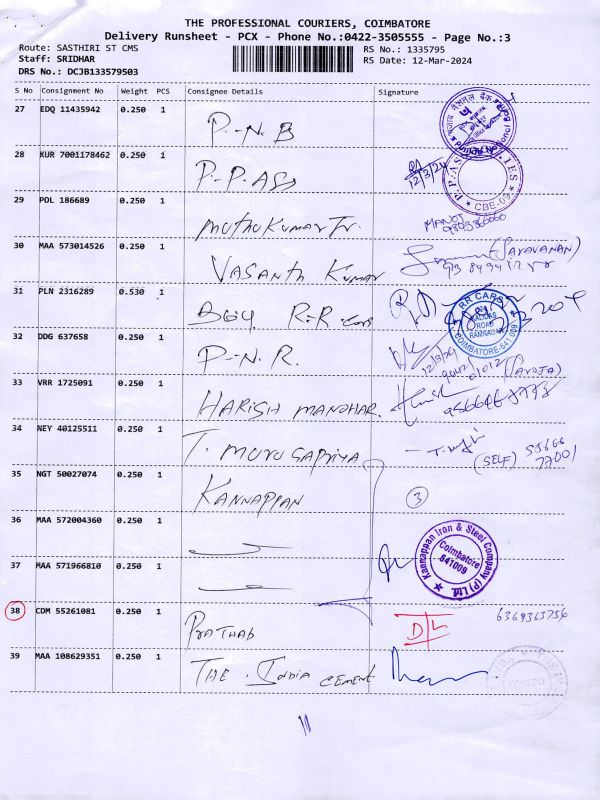 THE PROFESSIONAL COURIERS, COIMBATORE
Delivery Runsheet - PCX - Phone No.:0422-3505555 - Page No.:3
Route: SASTHIRI ST CMS
RS No.: 1335795
Staff: SRIDHAR
RS Date: 12-Mar-2024
DRS No.: DCJB133579503
S No Consignment No Weight PCS Consignee Details Signature
27 EDQ 11435942 0.250 1 P.-N.B
28 KUR 7001178462 0.250 1 P.-P.AS 12/3/24
P.P.AS IES CBE-09
29 POL 186689 0.250 1 MUTHUKUMAR Tr. MANOJ
30 MAA 573014526 0.250 1 VASANTH KUMAR (SARAVANAN)
31 PLN 2316289 0.530 1 R-R cars
RR CARS ROAD RAMNAGAR COIMBATORE-641 009
32 DDG 637658 0.250 1 P-N.R. 12/3/24
33 VRR 1725091 0.250 1 HARISH MANOHAR.
34 NEY 40125511 0.250 1 T. MURUGAPRIYA (SELF)
35 NGT 50027074 0.250 1 KANNAPPAN 3
36 MAA 572004360 0.250 1
Kannappan Iron & Steel Company (P) Ltd. Coimbatore 641009
37 MAA 571966810 0.250 1
38 CDM 55261081 0.250 1 PRATHAB D/L 6369363756
39 MAA 108629351 0.250 1 THE India CEMENT